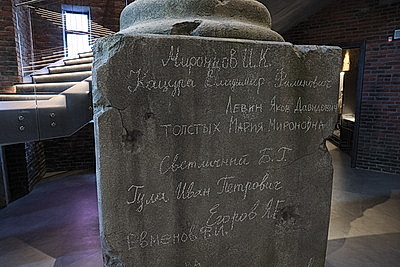 Миронцов И.К.
Кацура Владимир Филиппович
Левин Яков Давидович
ТОЛСТЫХ МАРИЯ МИРОНОВНА
Светличный Б.Г.
Гула Иван Петрович
Егоров А.Г.
ЕВМЕНОВ Е.И.